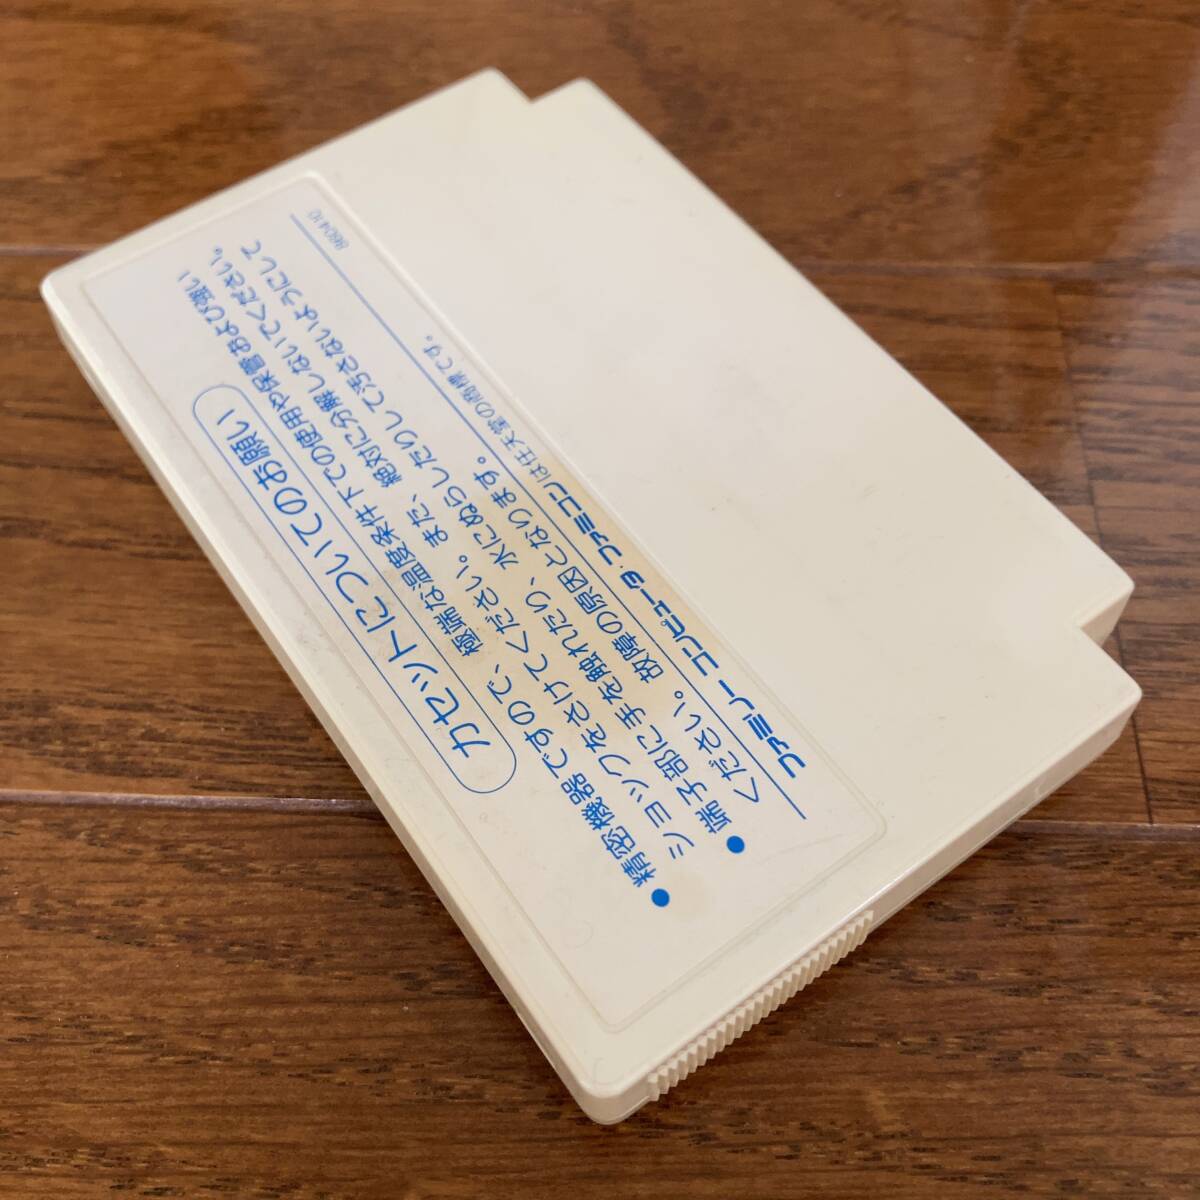 カセットについてのお願い
●精密機器ですので、極端な温度条件下での使用や保管および強い
ショックをさけてください。また、絶対に分解しないでください。
●端子部に手を触れたり、水にぬらしたりして汚さないようにして
ください。故障の原因となります。
ファミリー コンピュータ・ファミコンは任天堂の商標です。
860410